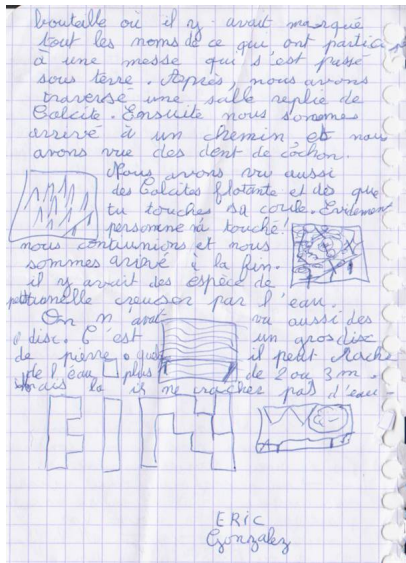 bouteille où il y avait marqué
tout les noms de ce qui ont partici
à une messe qui s'est passé
sous terre. Après, nous avons
traversé une salle replie de
Calcite. Ensuite nous somemes
arrivé à un chemin, et nous
avons vue des dent de cochon.
Nous avons vu aussi
des Calcites flotante et dès que
tu touches sa coule. Evidemen
personne n'a touché!
nous continunions et nous
sommes arrivé à la fin.
il y avait des espèce de
creuser par l'eau.
On n'avait vu aussi des
disc. C'est un gros disc
de pierre il peut
de l'eau plus de 2 ou 3 m.
Mais la il ne cracher pas d'eau
FIN
ERIC
Gonzalez